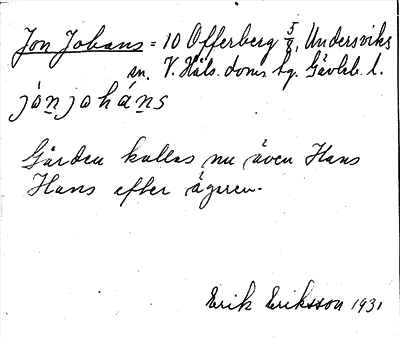 Jon Johans = 10 Offerberg 5/8, Undersviks
sn. V. Häls. doms hg. Gävleb. l.
jónjohán̲s
Gården kallas nu även Hans
Hans efter ägaren.
Erik Eriksson 1931